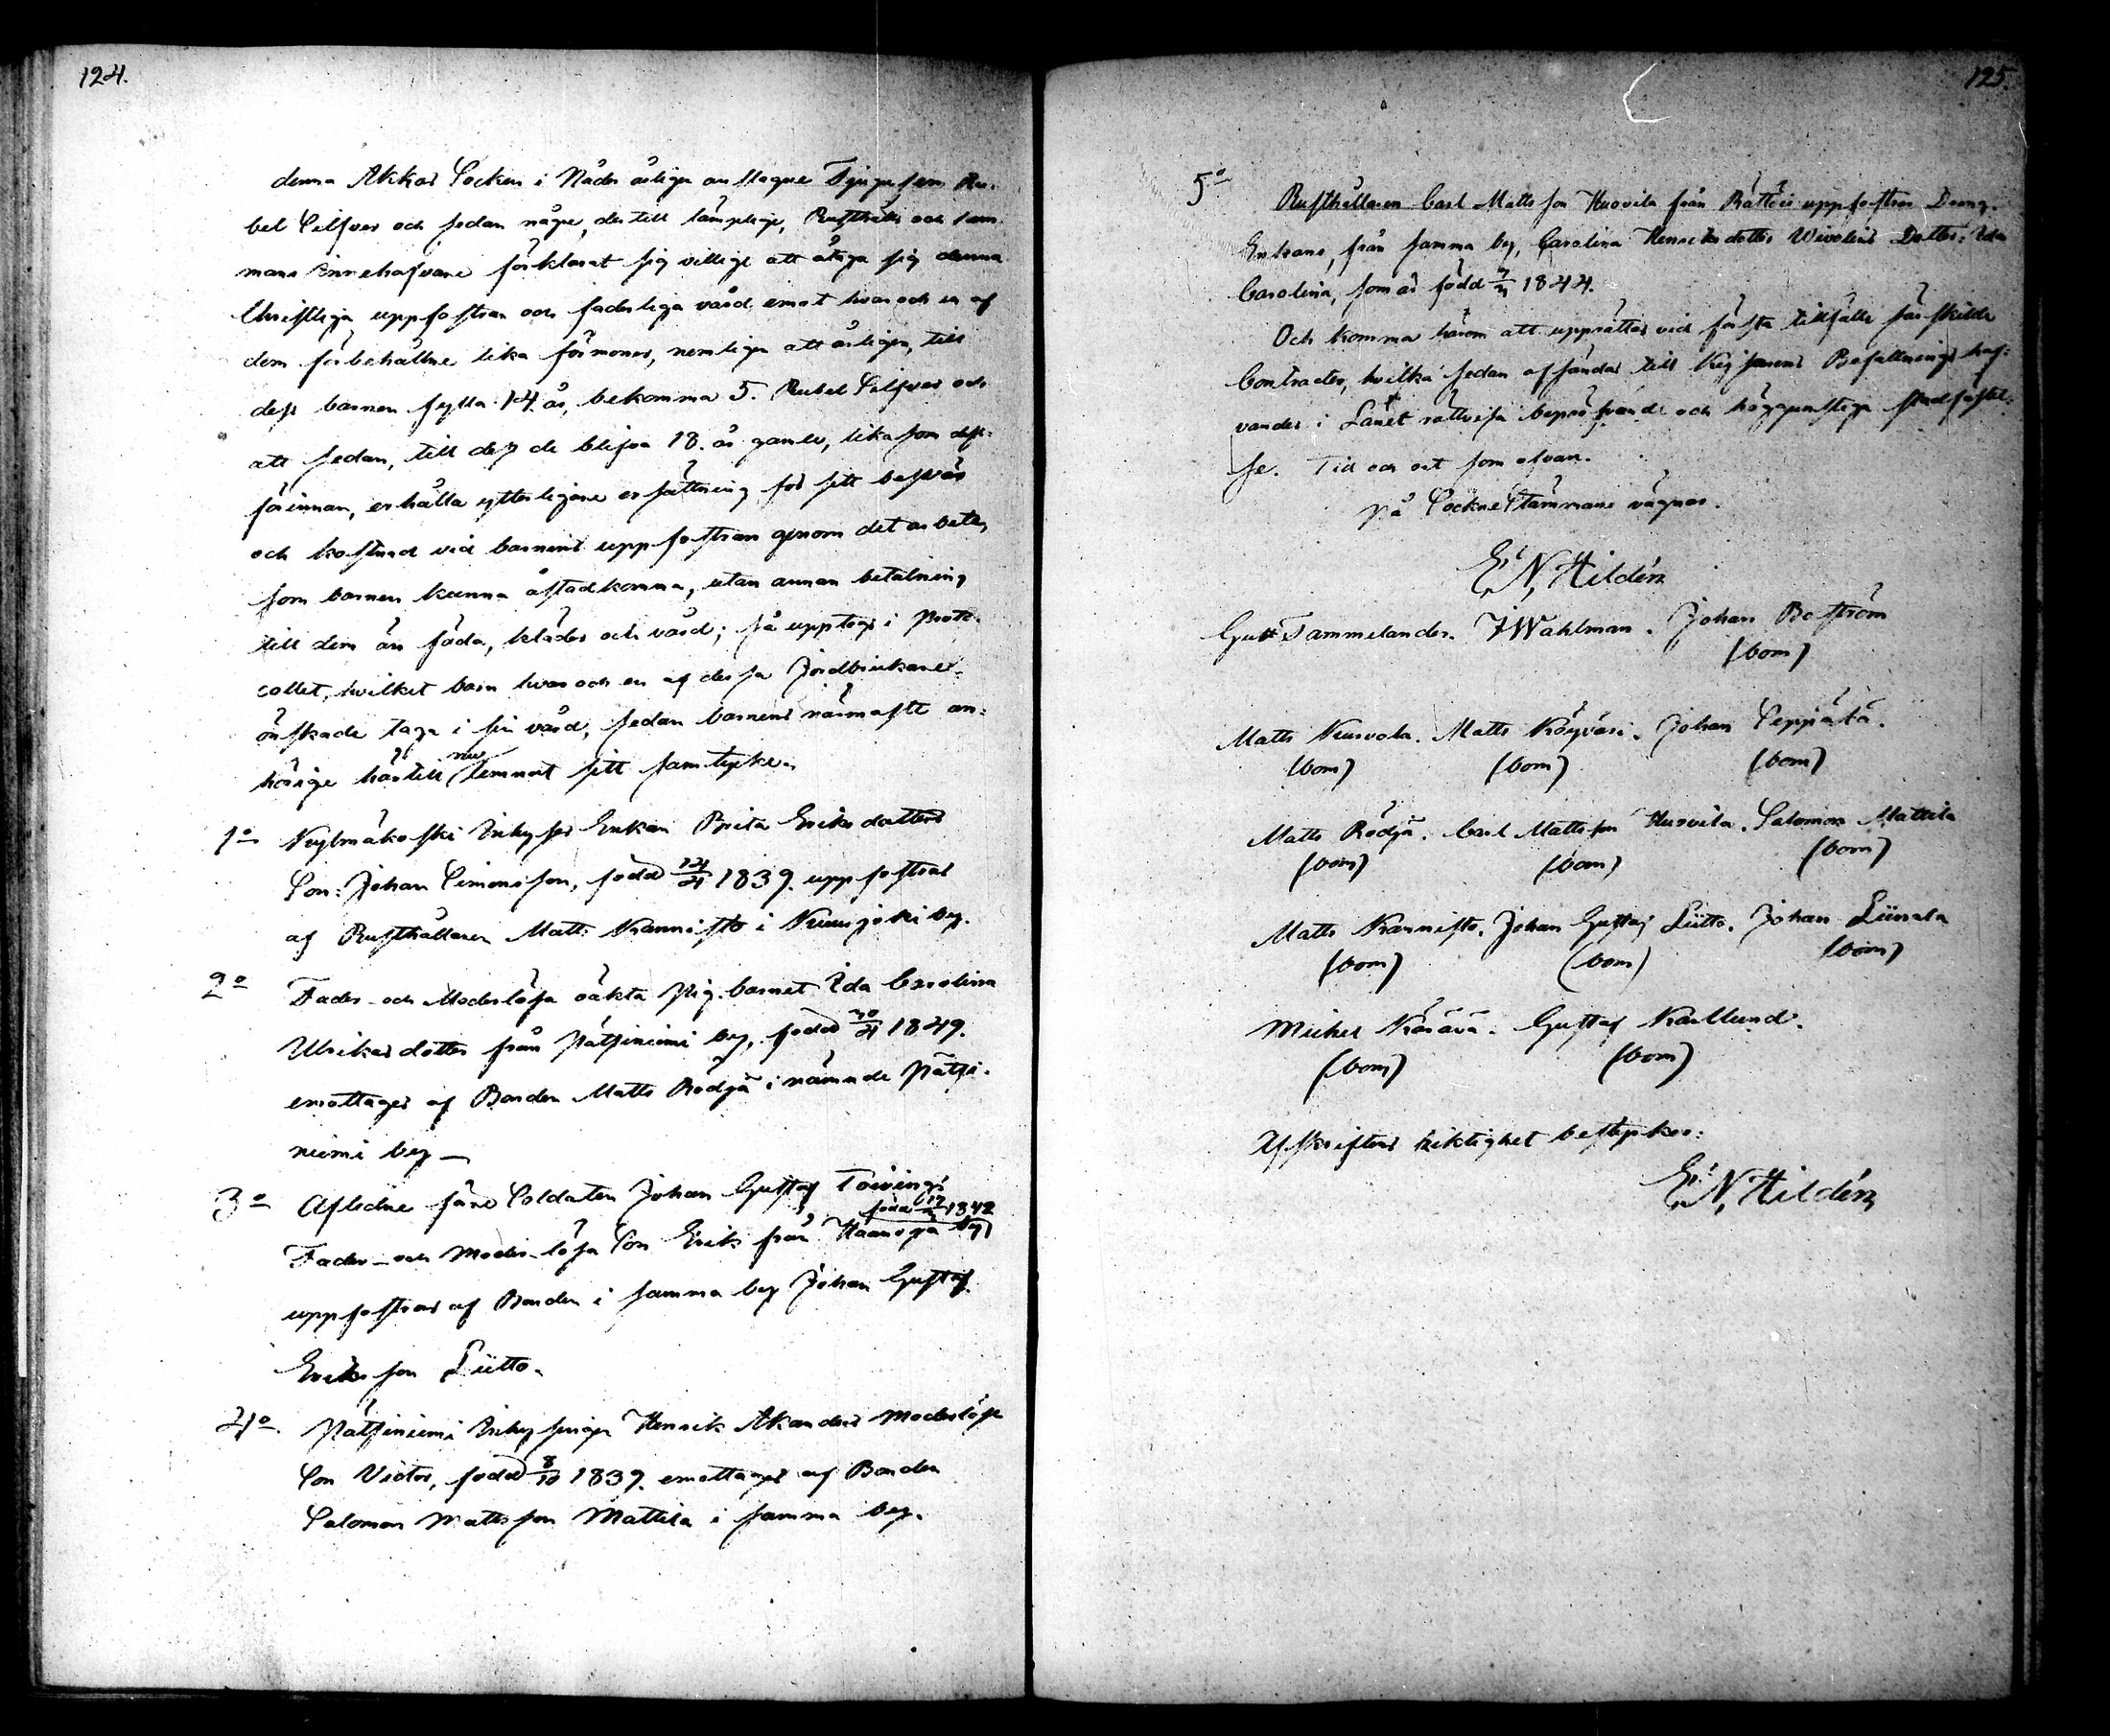 124.
denna Akkas Socken i Nåder årligen anslagne Tjugufem Ru-
bel Silfver och sedan någre, der till lämplige, Rusthålls och hem-
mans Innehafvare förklarat sig villige att åtaga sig denna
Christliga uppfostran och faderliga vård emot hvar och en af
dem förbehållne lika förmoner, nemligen att årligen, till
dess barnen fylla 14. år, bekomma 5. Rubel Silfver och
att sedan, till dess de blifva 18. år gamle, lika som dess-
förinnan, erhålla ytterligare ersättning för sitt besvär
och kostnad vid barnens uppfostran genom det arbete,
som barnen kunna åstadkomma, utan annan betalning
till dem än föda, kläder och vård; så upptogs i Proto-
collet, hvilket barn hvar och en af dessa Jordbrukare
önskade taga i sin vård, sedan barnens närmaste an-
hörige härtill nu lemnat sitt samtycke.
1o Kylmäkoski Inhyses Enkan Brita Eriksdotters
Son: Johan Simonsson, född 14/4 1839. uppfostras
af Rusthållaren Matts Kannisto i Kurisjoki by.
2o Fader- och Moderlösa oäkta pig-barnet Ida Carolina
Ulrikasdotter från Pätsiniemi by, född 30/4 1849.
emottages af Bonden Matts Rödjä i nämnde Pätsi-
niemi by —
3o Aflidne förre Soldaten Johan Gustaf Toivings
född 17/ 1842
Fader- och Moder-löse Son Erik från Haanoja by
uppfostras af Bonden i samma by Johan Gustaf
Eriksson Liitto.
4o Pätsiniemi Inhysingen Henrik Akanders moderlöse
Son Victor, född 8/10 1839. emottages af Bonden
Salomon Mattsson Mattila i samma by.
125.
5o Rusthållaren Carl Mattsson Huovila från uppfostrar Dreng-
Enkans, från samma by, Carolina Henriksdotter Wivolins Dotter: Ida
Carolina, som är född 1844.
Och komma härom att upprättas vid första tillfälle särskilde
Contracter, hvilka sedan afsändas till Kejsarens Befallningshaf-
vandes i Länet rättvisa bepröfvande och höggunstiga stadfästel-
se. Tid och ort som ofvan.
På Sockne Stämmans vägnar.
E. N. Hildén
Gust Tammelander. J Wahlman. Johan Boström
(bom)
Matts Kurvola. Matts Köyväri. Johan Seppälä.
(bom) (bom) (bom)
Matts Rödjä. Carl Mattsson Huovila. Salomon Mattila
(bom) (bom) (bom)
Matts Kannisto. Johan Gustaf Liitto. Johan Liinala
(bom) (bom) (bom)
Michel Kärävä. Gustaf Karllund.
(bom) (bom)
Afskriftens riktighet bestyrker:
E. N. Hildén